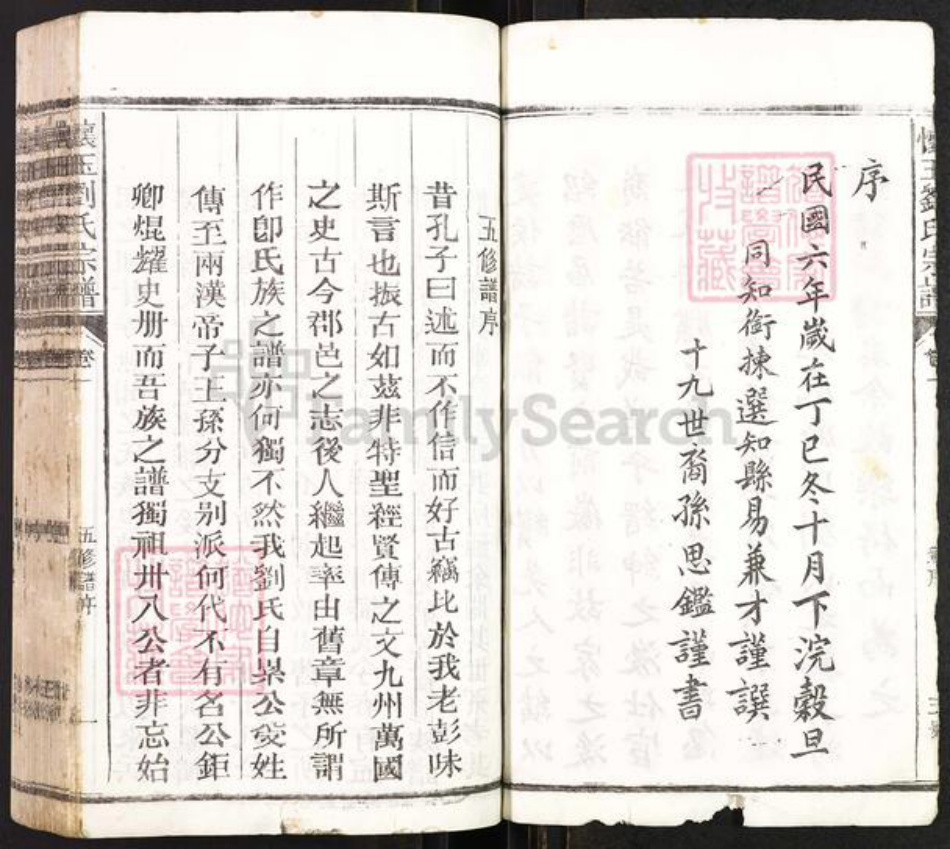 序
民國六年歲在丁巳冬十月下浣穀旦
同知銜揀選知縣易兼才謹譔
十九世裔孫思鑑謹書
五修譜序
昔孔子曰述而不作信而好古竊比於我老彭味
斯言也振古如茲非特聖經賢傳之文九州萬國
之史古今郡邑之志後人繼起率由舊章無所謂
作卽氏族之譜亦何獨不然我劉氏自累公受姓
傳至兩漢帝子王孫分支別派何代不有名公鉅
卿焜耀史册而吾族之譜獨祖卅八公者非忘始
懷玉劉氏宗譜
卷一
五修譜序
一
FamilySearch